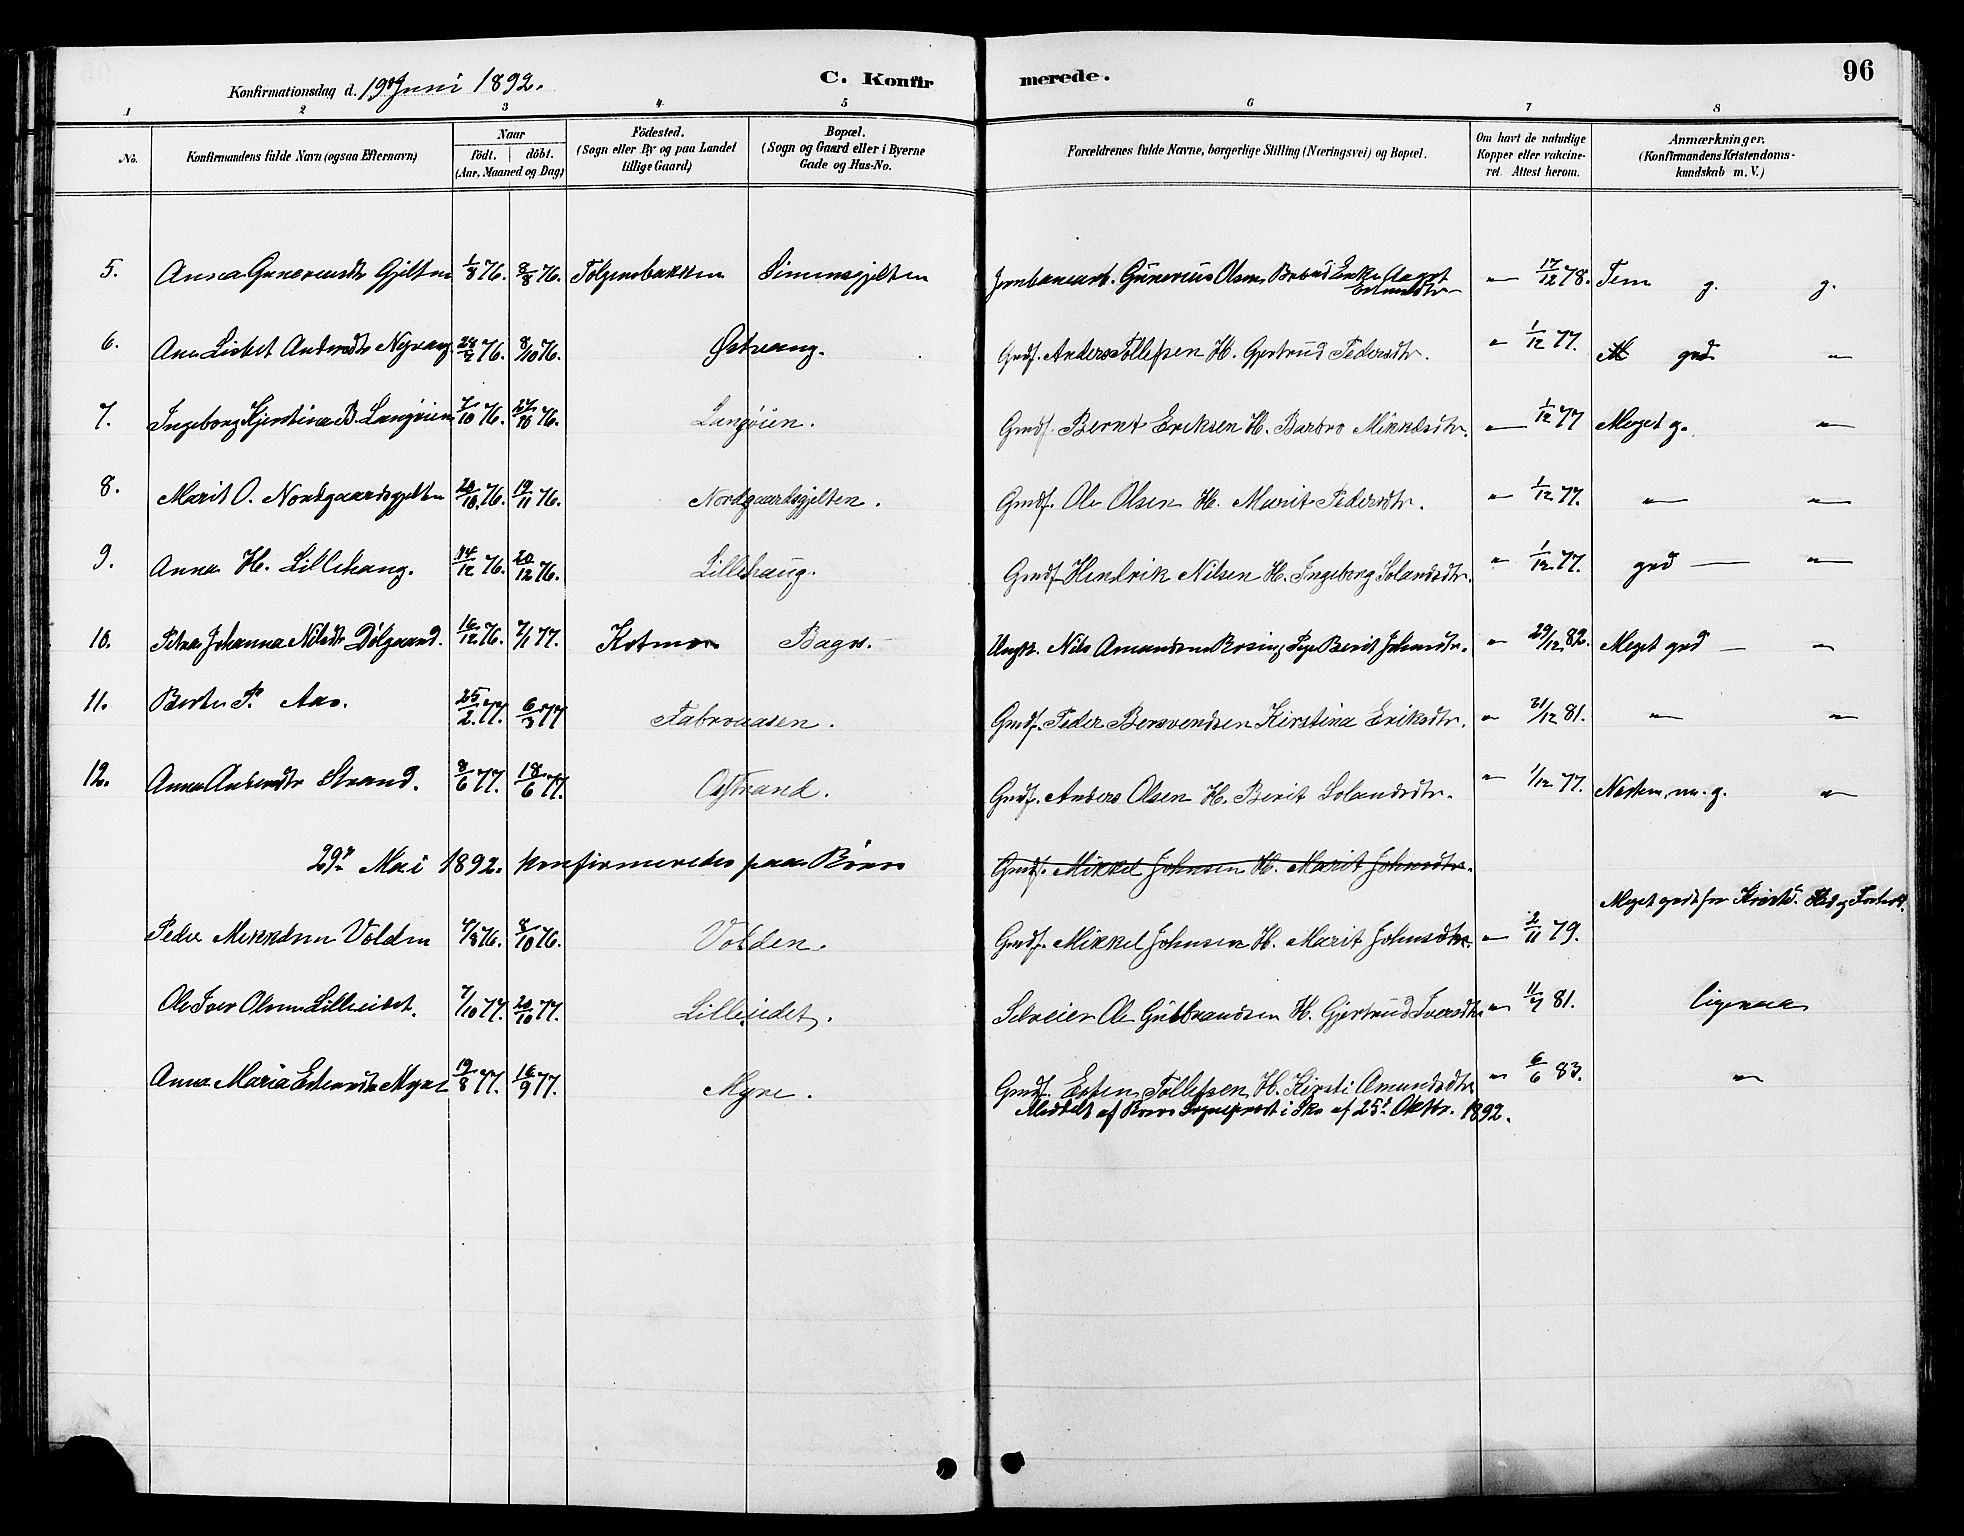 96
Konfirmationsdag d. 19 Juni 1892.
C. Konfir merede.
1 2 3 4 5 6 7 8
No.
Konfirmandens fulde Navn (ogsaa Efternavn)
Naar
födt. döbt.
(Aar, Maaned og Dag)
Födested.
(Sogn eller By og paa Landet
tillige Gaard)
Bopæl.
(Sogn og Gaard eller i Byerne
Gade og Hus-No.
Forældrenes fulde Navne, borgerlige Stilling (Næringsvei) og Bopæl.
Om havt de naturlige
Kopper eller vakcine-
ret. Attest herom.
Anmærkninger.
(Konfirmandens Kristendoms-
kundskab m. V.)
5. Gjelten 1/8 76. 8/8 76. Tolgensbakken Simensgjelten Gunerius Olsen Enke Aagot " 17/12 78. Tem g. g.
6. Ane Lisbet Andersdtr Nyvang 24/2 76. 8/10 76. Østvang. Gmdf. Anders Tollefsen H. Gjertrud Pedersdtr. " 1/12 77. M god "
7. Ingeborg Kjerstina B. Langøien 7/10 76. 76. Langøien. Gmdf. Bernt Eriksen H. Barbro Mikkelsdtr. " 1/12 77 Meget g. "
8. Marit O. Nordgaardsgjelten 20/10 76. 19/11 76. Nordgaardsgjelten. Gmdf. Ole Olsen H. Marit Pedersdtr. " 1/12 77. " "
9. Anna H. Lillehaug. 14/12 76. 20/12 76. Lillehaug. Gmdf. Hendrik Nilsen H. Ingeborg " 1/12 77. god "
10. Petra Johanna Nilsdtr Dølgaard. 16/12 76. 7/1 77. Kotmo Nils Amundsen Pige Berit Johnsdtr. " 29/12 82. Meget god "
11. Berte P. Aas. 25/2 77. 6/3 77 Gmdf. Peder Bersvendsen Kirstina Eriksdtr. " 31/12 81. " "
12. Anna Andersdtr Strand. 8/6 77. 18/6 77. Gmdf. Anders Olsen H. Berit " 1/12 77. Næsten m. g. "
29de Mai 1892. konfirmeredes paa Røros Gmdf. Mikkel Johnsen H. Marit Johnsdtr.
Meget godt for Kristd. Kds og Forhold.
Peder Mikkelsen Volden 76. 8/10 76. Volden. Gmdf. Mikkel Johnsen H. Marit Johnsdtr. " 2/11 79.
Ole Iver Olsen Lilleeidet. 7/10 77. 20/10 77. Lilleeidet. Selveier Ole Gulbrandsen H. Gjertrud Iversdtr " 11/7 81. ligesaa
Anna Maria Estensdtr Myre 19/8 77. 16/9 77. Myre. Gmdf. Esten Tollefsen H. Kirsti Amundsdtr " 6/6 83. "
Meddelt af Røros Sogneprest i Skr. af 25de Oktbr. 1892.